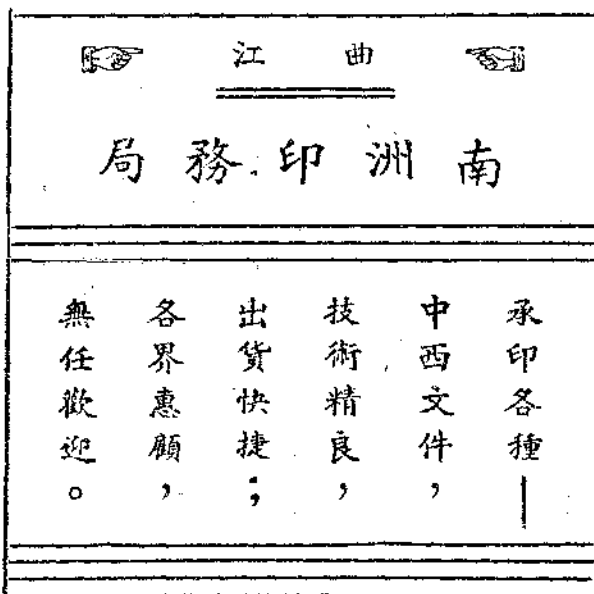 曲江
南洲印務局
承印各種—
中西文件，
技術精良，
出貨快捷；
各界惠顧，
無任歡迎。